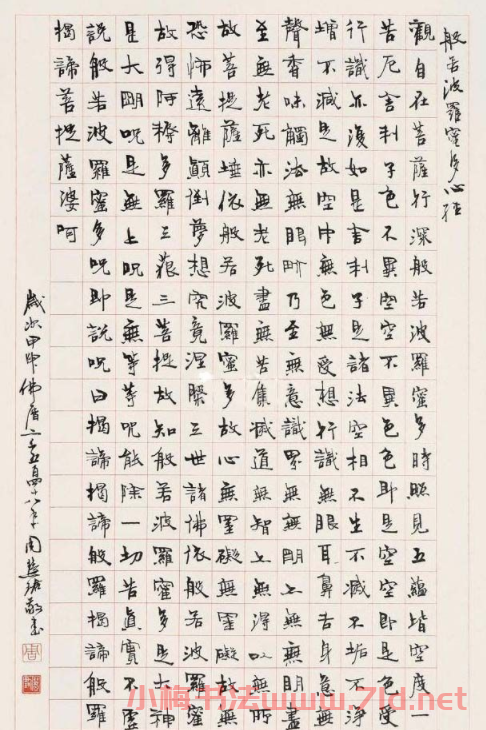 般若波羅蜜多心經
觀自在菩薩行深般若波羅蜜多時照見五蘊皆空度一
苦厄舍利子色不異空空不異色色即是空空即是色受
行識亦復如是舍利子是諸法空相不生不滅不垢不淨
增不減是故空中無色無受想行識無眼耳鼻舌身意無
聲香味觸法無眼界乃至無意識界無無明亦無無明盡
至無老死亦無老死盡無苦集滅道無智亦無得以無所
故菩提薩埵依般若波羅蜜多故心無罣礙無罣礙故無
恐怖遠離顛倒夢想究竟涅槃三世諸佛依般若波羅蜜
故得阿耨多羅三藐三菩提故知般若波羅蜜多是大神
是大明咒是無上咒是無等等咒能除一切苦真實不虛
說般若波羅蜜多咒即說咒曰揭諦揭諦般羅揭諦般羅
揭諦菩提薩婆呵
歲次甲申佛曆二千五百四十八年周慧珺敬書
小梅书法www.7ld.net